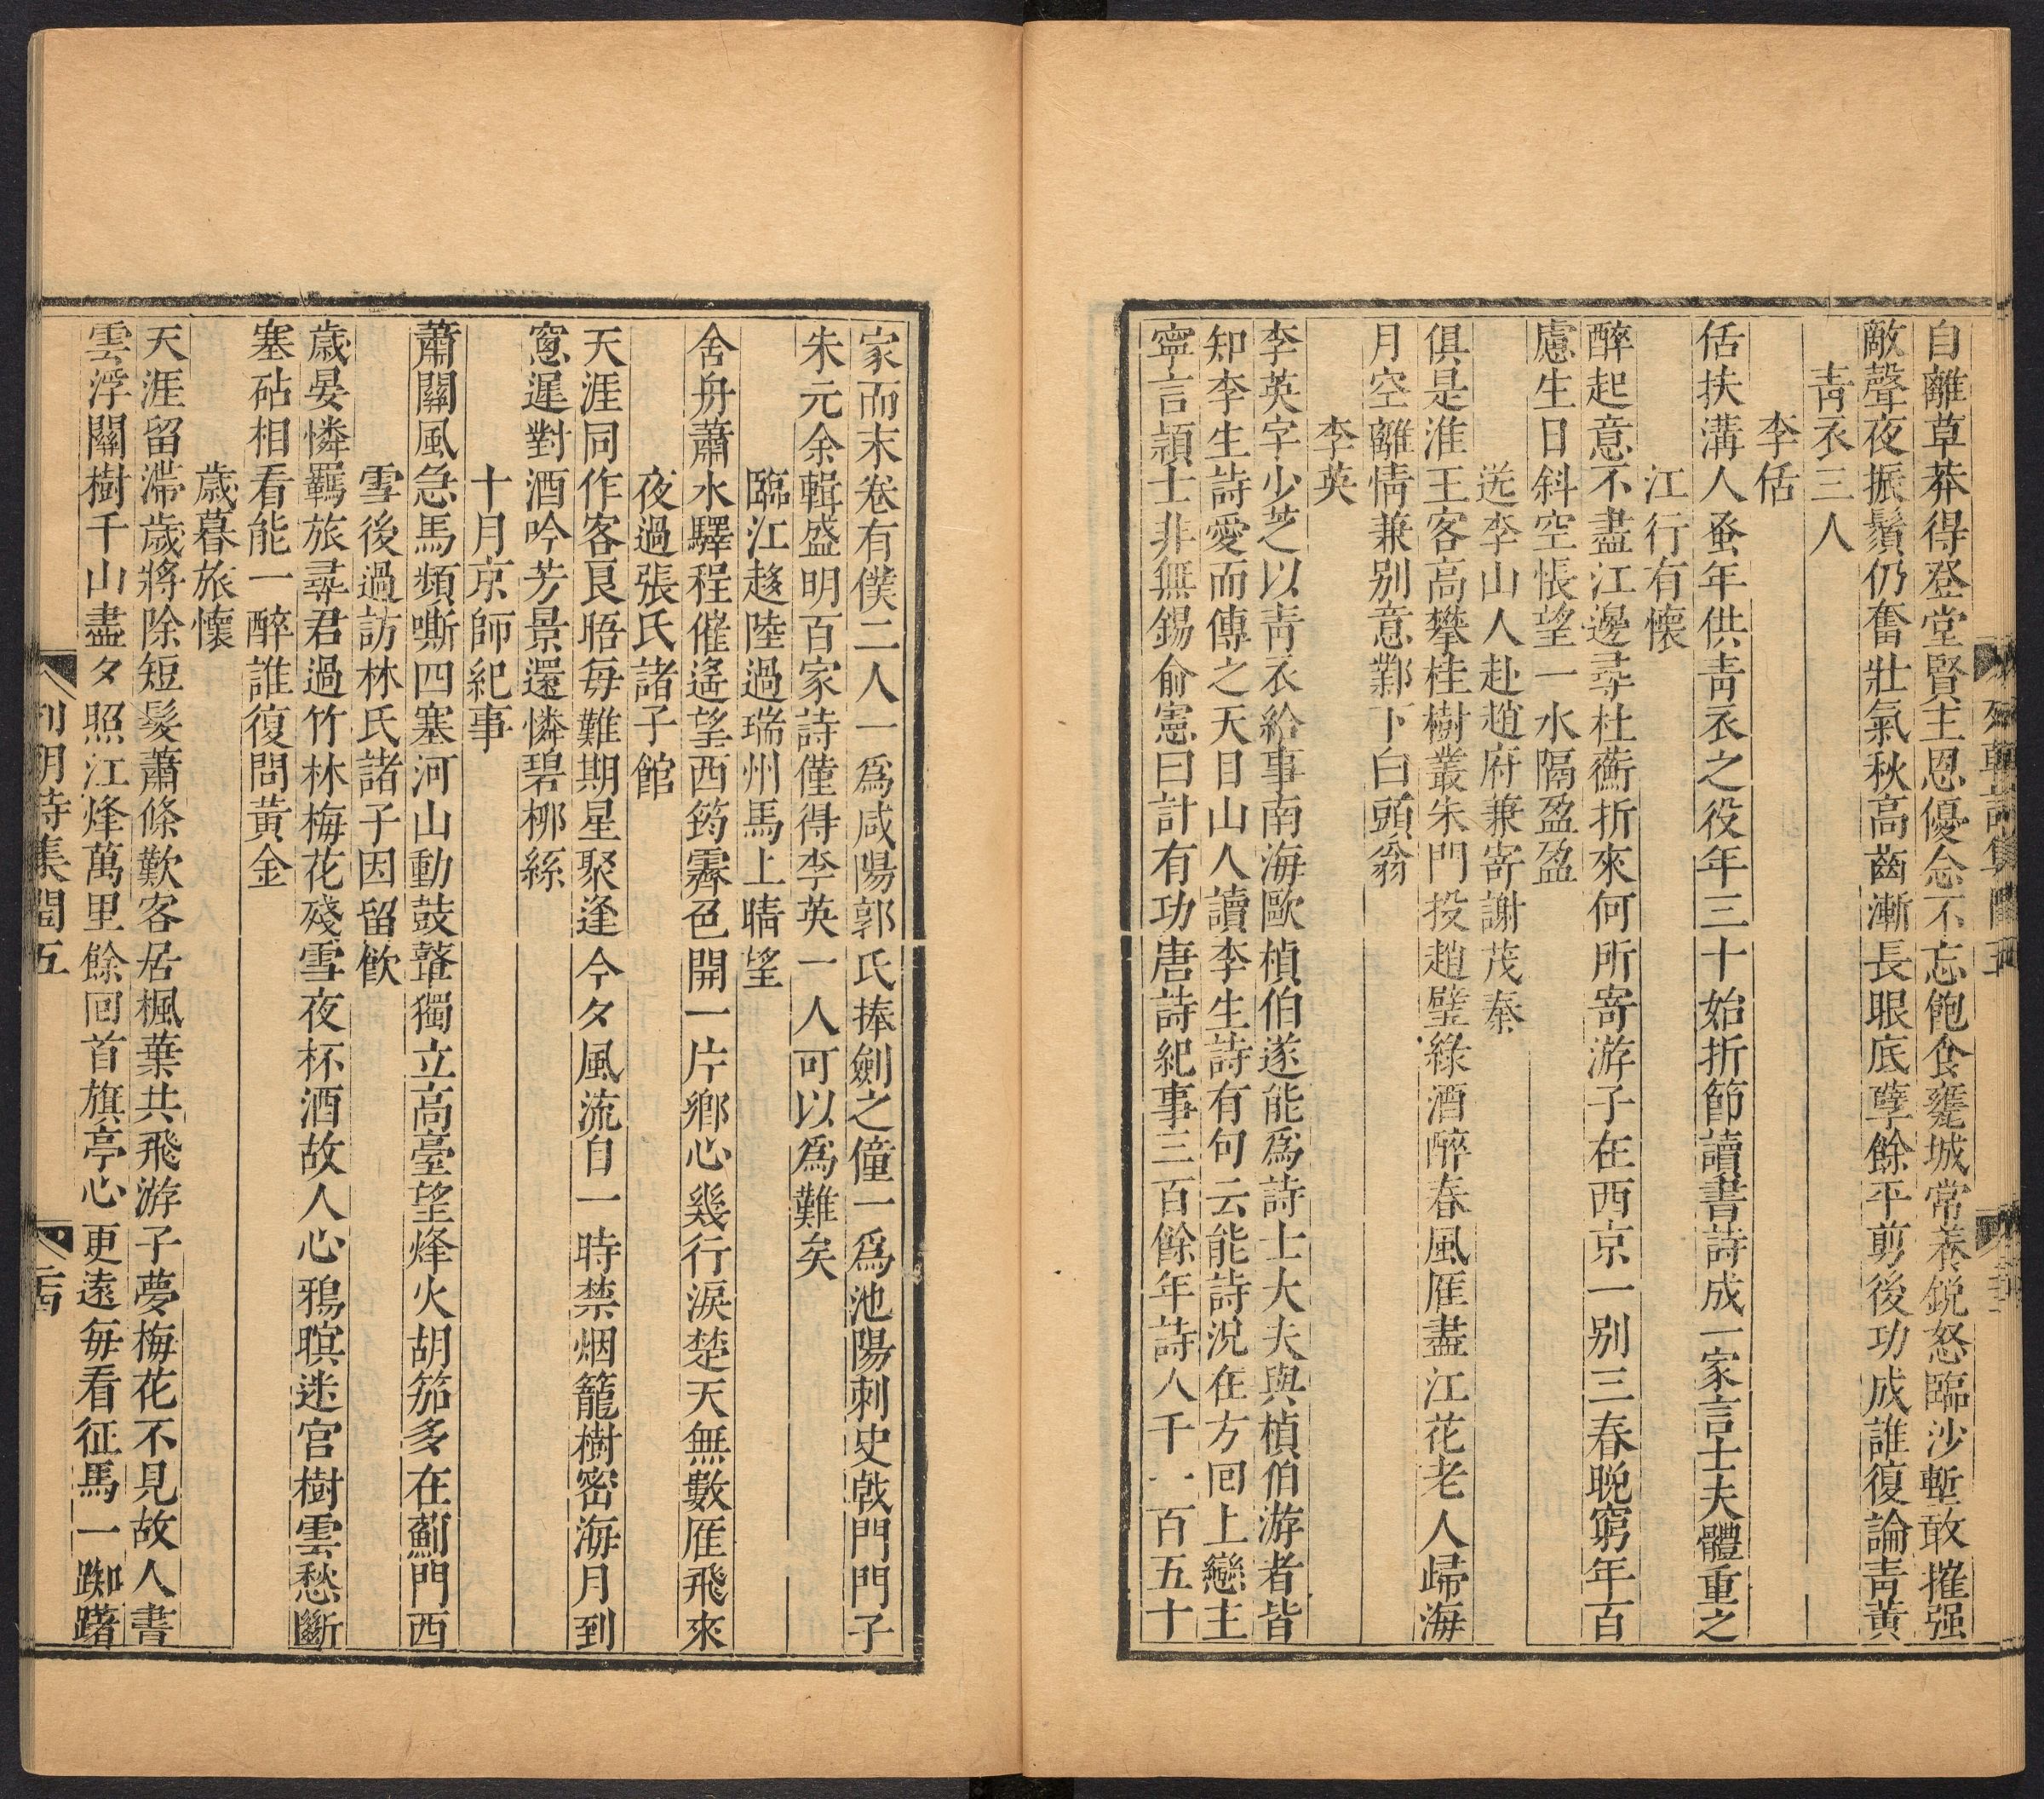 自離草莽得登堂賢主恩優念不忘飽食甕城常養鋭怒臨沙塹敢摧强
敵聲夜振鬚仍奮壯氣秋高齒漸長眼底孽餘平剪後功成誰復論靑黃
靑衣三人
李佸
佸扶溝人蚤年供靑衣之役年三十始折節讀書詩成一家言士夫體重之
江行有懷
醉起意不盡江邊尋杜蘅折來何所寄游子在西京一别三春晚窮年百
慮生日斜空悵望一水隔盈盈
送李山人赴趙府兼寄謝茂秦
俱是淮王客高攀桂樹叢朱門投趙璧綠酒醉春風雁盡江花老人歸海
月空離情兼别意鄴下白頭翁
李英
李英字少芝以靑衣給事南海歐楨伯遂能爲詩士大夫與楨伯游者皆
知李生詩愛而傳之天目山人讀李生詩有句云能詩況在方回上戀主
寧言穎士非無錫俞憲曰計有功唐詩紀事三百餘年詩人千一百五十
家而末卷有僕二人一爲咸陽郭氏捧劍之僮一爲池陽刺史戟門門子
朱元余輯盛明百家詩僅得李英一人可以爲難矣
臨江趍陸過瑞州馬上晴望
舍舟蕭水驛程催遙望西筠霽色開一片鄕心幾行淚楚天無數雁飛來
夜過張氏諸子館
天涯同作客良晤每難期星聚逢今夕風流自一時禁烟籠樹密海月到
窻遲對酒吟芳景還憐碧栁絲
十月京師紀事
蕭關風急馬頻嘶四塞河山動鼓鼙獨立高臺望烽火胡笳多在薊門西
雪後過訪林氏諸子因留飮
歲晏憐羈旅尋君過竹林梅花殘雪夜杯酒故人心鴉暝迷官樹雲愁斷
塞砧相看能一醉誰復問黃金
歲暮旅懷
天涯留滯歲將除短髮蕭條歎客居楓葉共飛游子夢梅花不見故人書
雲浮關樹千山盡夕照江烽萬里餘回首旗亭心更遠每看征馬一踟躇
列朝詩集閏五